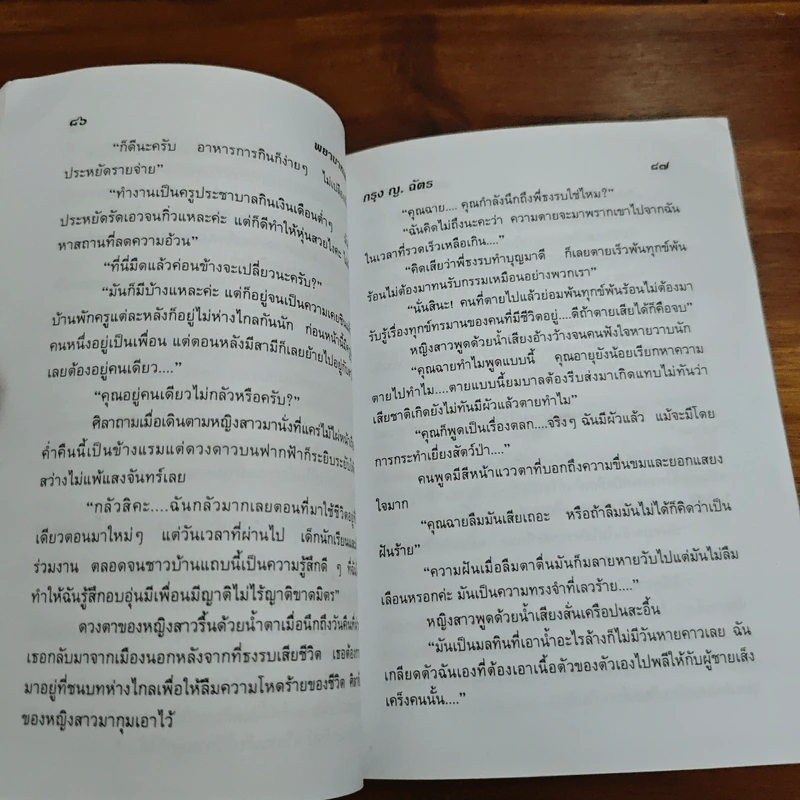 ๘๖
พยาบาท
“ก็ดีนะครับ อาหารการกินก็ง่ายๆ ไม่เปลือง
ประหยัดรายจ่าย”
“ทำงานเป็นครูประชาบาลกินเงินเดือนต่ำๆ
ประหยัดรัดเอวจนกิ่วแหละค่ะ แต่ก็ดีทำให้หุ่นสวยไงคะ
หาสถานที่ลดความอ้วน”
“ที่นี่มืดแล้วค่อนข้างจะเปลี่ยวนะครับ?”
“มันก็มีบ้างแหละค่ะ แต่ก็อยู่จนเป็นความเคยชิน
บ้านพักครูแต่ละหลังก็อยู่ไม่ห่างไกลกันนัก ก่อนหน้านี้
คนหนึ่งอยู่เป็นเพื่อน แต่ตอนหลังมีสามีก็เลยย้ายไปอยู่
เลยต้องอยู่คนเดียว....”
“คุณอยู่คนเดียวไม่กลัวหรือครับ?”
ศิลาถามเมื่อเดินตามหญิงสาวมานั่งที่แคร่ไม้ไผ่
ค่ำคืนนี้เป็นข้างแรมแต่ดวงดาวบนฟากฟ้าก็ระยิบระยับ
สว่างไม่แพ้แสงจันทร์เลย
“กลัวสิคะ....ฉันกลัวมากเลยตอนที่มาใช้ชีวิต
เดียวตอนมาใหม่ๆ แต่วันเวลาที่ผ่านไป เด็กนักเรียน
ร่วมงาน ตลอดจนชาวบ้านแถบนี้เป็นความรู้สึกดี ๆ
ทำให้ฉันรู้สึกอบอุ่นมีเพื่อนมีญาติไม่ไร้ญาติขาดมิตร”
ดวงตาของหญิงสาวรื้นด้วยน้ำตาเมื่อนึกถึงวันคืน
เธอกลับมาจากเมืองนอกหลังจากที่ธงรบเสียชีวิต เธอต้อง
มาอยู่ที่ชนบทห่างไกลเพื่อให้ลืมความโหดร้ายของชีวิต
ของหญิงสาวมากุมเอาไว้
กรุง ญ. ฉัตร
๘๗
“คุณฉาย.... คุณกำลังนึกถึงพี่ธงรบใช่ไหม?”
“ฉันคิดไม่ถึงนะคะว่า ความตายจะมาพรากเขาไปจากฉัน
ในเวลาที่รวดเร็วเหลือเกิน....”
“คิดเสียว่าพี่ธงรบทำบุญมาดี ก็เลยตายเร็วพ้นทุกข์พ้น
ร้อนไม่ต้องมาทนรับกรรมเหมือนอย่างพวกเรา”
“นั่นสินะ! คนที่ตายไปแล้วย่อมพ้นทุกข์พ้นร้อนไม่ต้องมา
รับรู้เรื่องทุกข์ทรมานของคนที่มีชีวิตอยู่....ดีถ้าตายเสียได้ก็คือจบ”
หญิงสาวพูดด้วยน้ำเสียงอ้างว้างจนคนฟังใจหายวาบนัก
“คุณฉายทำไมพูดแบบนี้ คุณอายุยังน้อยเรียกหาความ
ตายไปทำไม....ตายแบบนี้ยมบาลต้องรีบส่งมาเกิดแทบไม่ทันว่า
เสียชาติเกิดยังไม่ทันมีผัวแล้วตายทำไม”
“คุณก็พูดเป็นเรื่องตลก....จริงๆ ฉันมีผัวแล้ว แม้จะมีโดย
การกระทำเยี่ยงสัตว์ป่า....”
คนพูดมีสีหน้าแววตาที่บอกถึงความขื่นขมและยอกแสยง
ใจมาก
“คุณฉายลืมมันเสียเถอะ หรือถ้าลืมมันไม่ได้ก็คิดว่าเป็น
ฝันร้าย”
“ความฝันเมื่อลืมตาตื่นมันก็มลายหายวับไปแต่มันไม่ลืม
เลือนหรอกค่ะ มันเป็นความทรงจำที่เลวร้าย....”
หญิงสาวพูดด้วยน้ำเสียงสั่นเครือปนสะอื้น
“มันเป็นมลทินที่เอาน้ำอะไรล้างก็ไม่มีวันหายคาวเลย ฉัน
เกลียดตัวฉันเองที่ต้องเอาเนื้อตัวของตัวเองไปพลีให้กับผู้ชายเส็ง
เคร็งคนนั้น....”